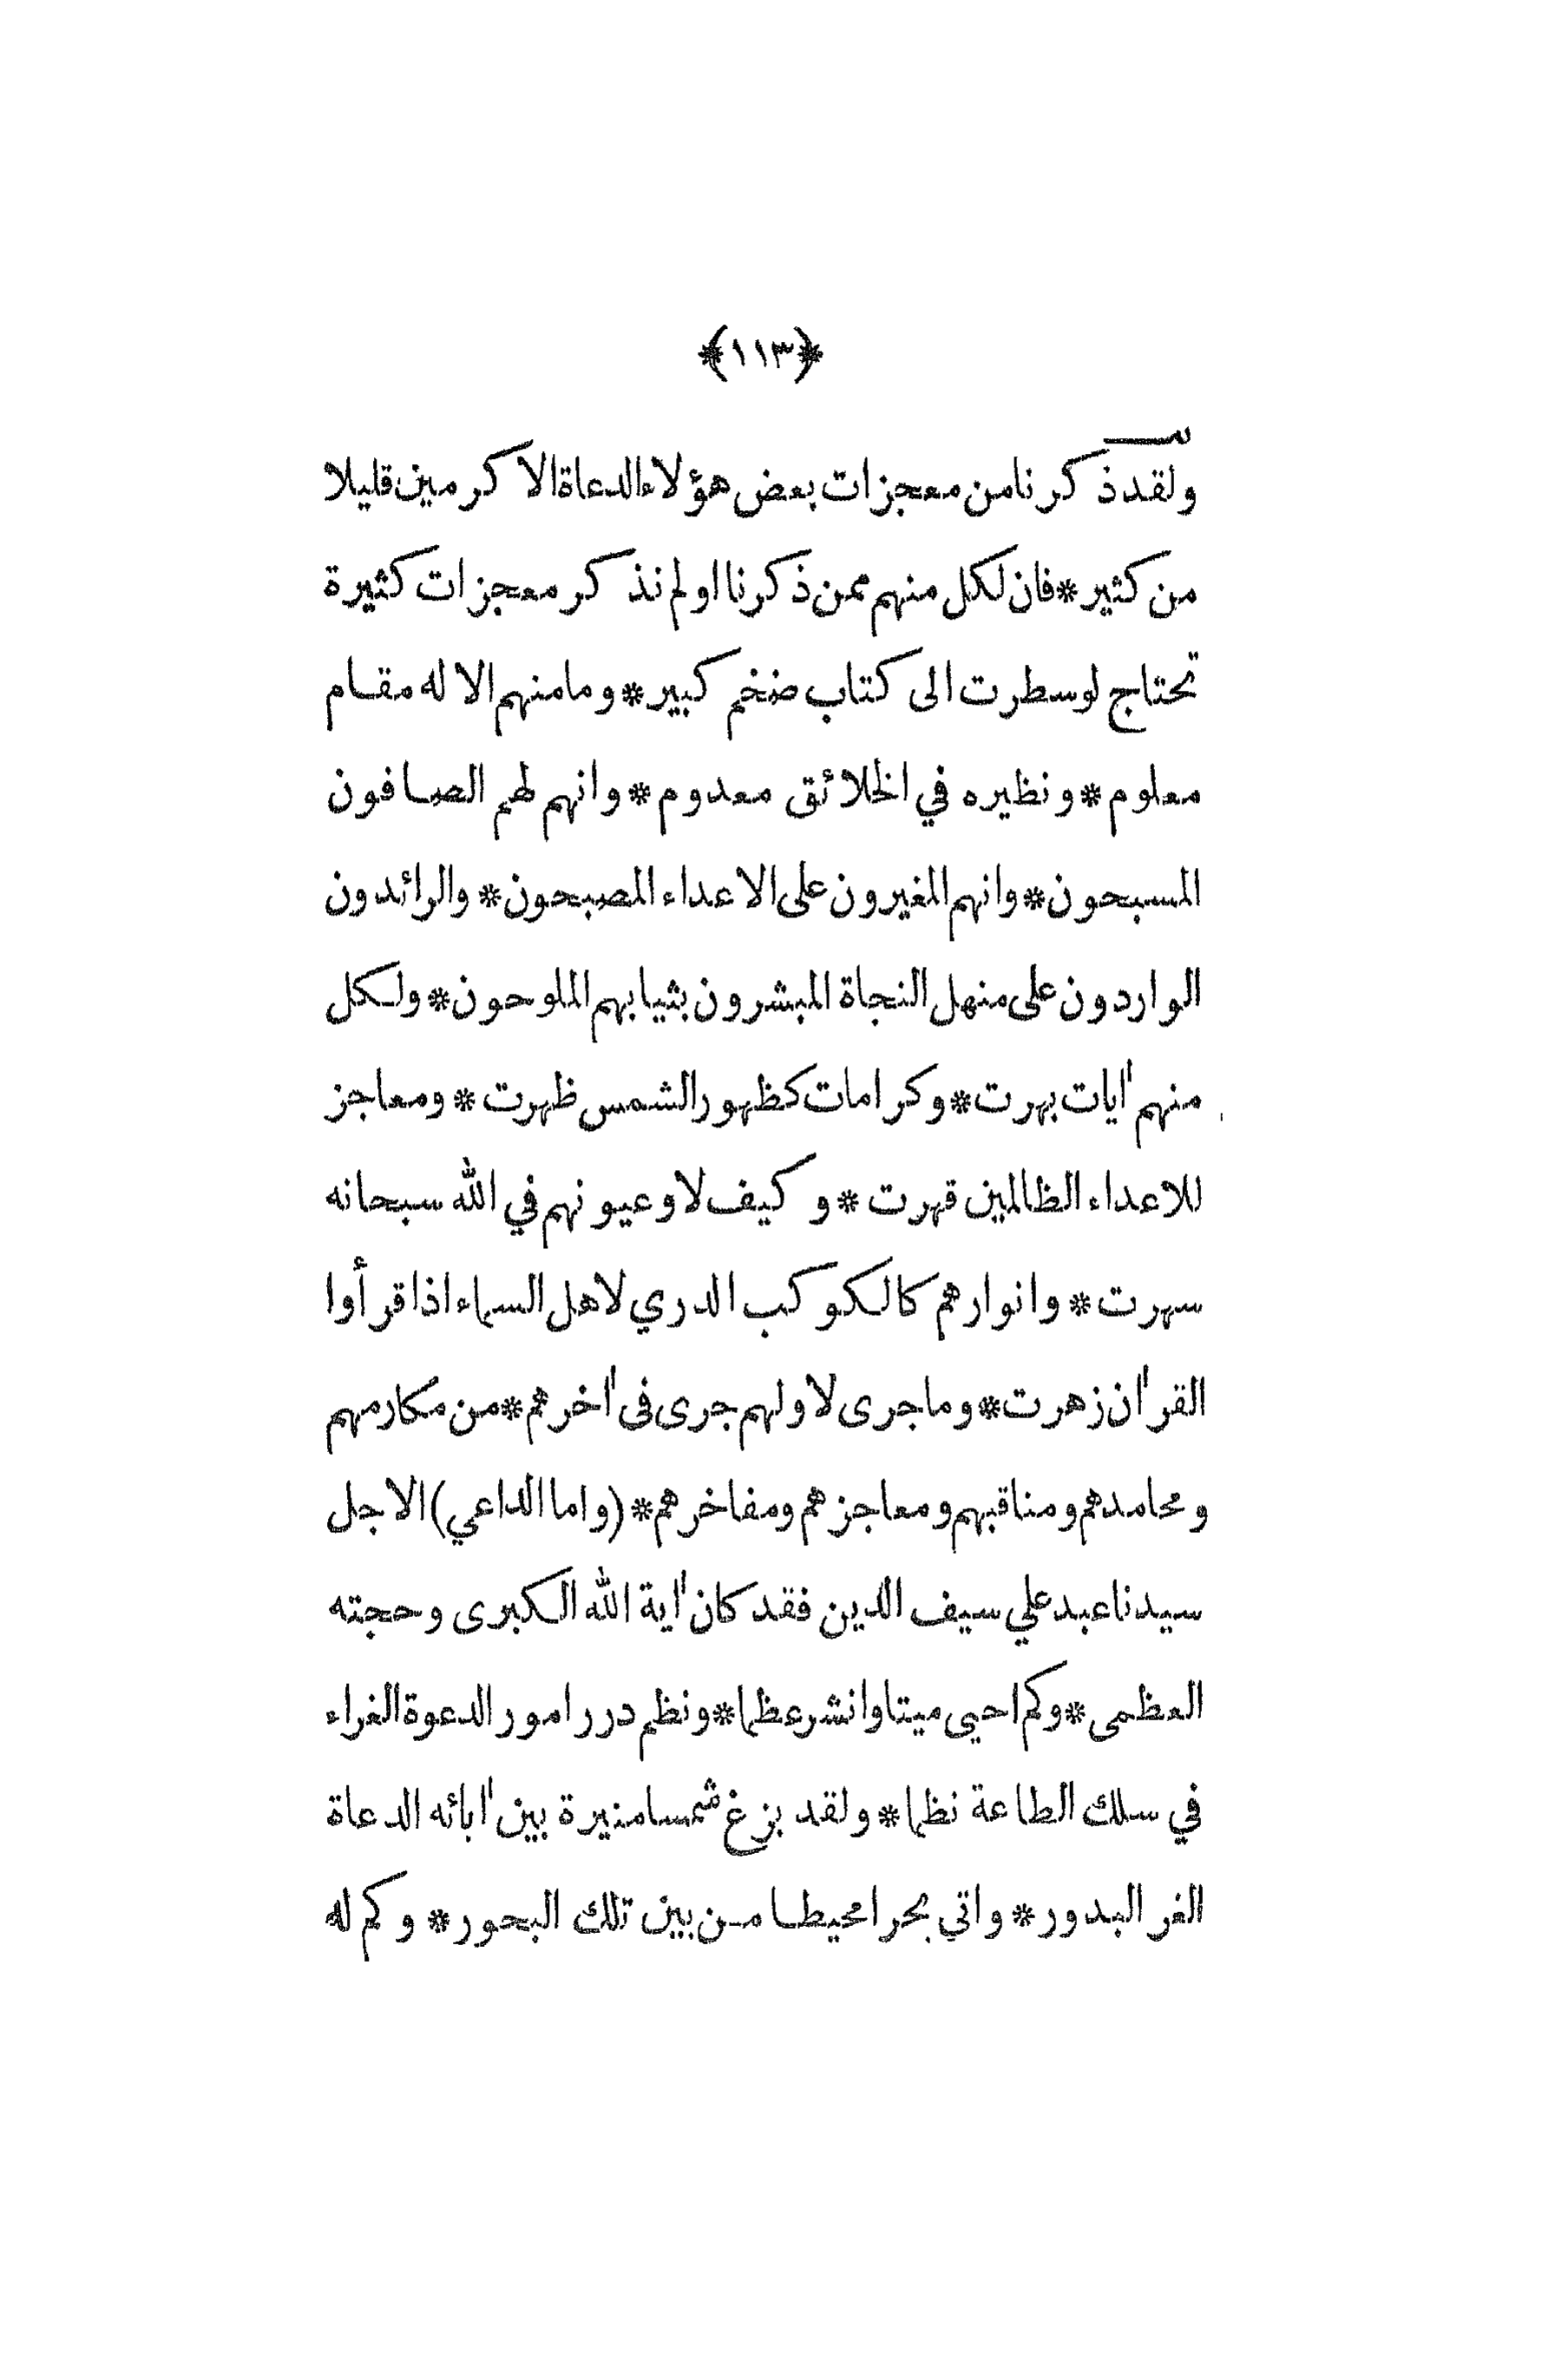 ﴿١١٣﴾
ولقد ذكرنا من معجزات بعض هؤلاء الدعاة الاكرمين قليلا
من كثير * فان لكل منهم ممن ذكرنا او لم نذكر معجزات كثيرة
تحتاج لو سطرت الى كتاب ضخم كبير * وما منهم الا له مقام
معلوم * ونظيره في الخلائق معدوم * وانهم لهم الصافون
المسبحون * وانهم المغيرون على الاعداء المصبحون * والرائدون
الواردون على منهل النجاة المبشرون بثيابهم الملوحون * ولكل
منهم اٰيات بهرت * وكرامات كظهور الشمس ظهرت * ومعاجز
للاعداء الظالمين قهرت * وكيف لا وعيونهم في الله سبحانه
سهرت * وانوارهم كالكوكب الدري لاهل السماء اذا قرأوا
القراٰن زهرت * وما جرى لاولهم جرى فى اٰخرهم * من مكارمهم
ومحامدهم ومناقبهم ومعاجزهم ومفاخرهم * (واما الداعي) الاجل
سيدنا عبد علي سيف الدين فقد كان اٰية الله الكبرى وحجته
العظمى * وكم احيى ميتا وانشر عظما * ونظم درر امور الدعوة الغراء
في سلك الطاعة نظما * ولقد بزغ شمسا منيرة بين اٰبائه الدعاة
الغر البدور * واتي بحرا محيطا من بين تلك البحور * وكم له